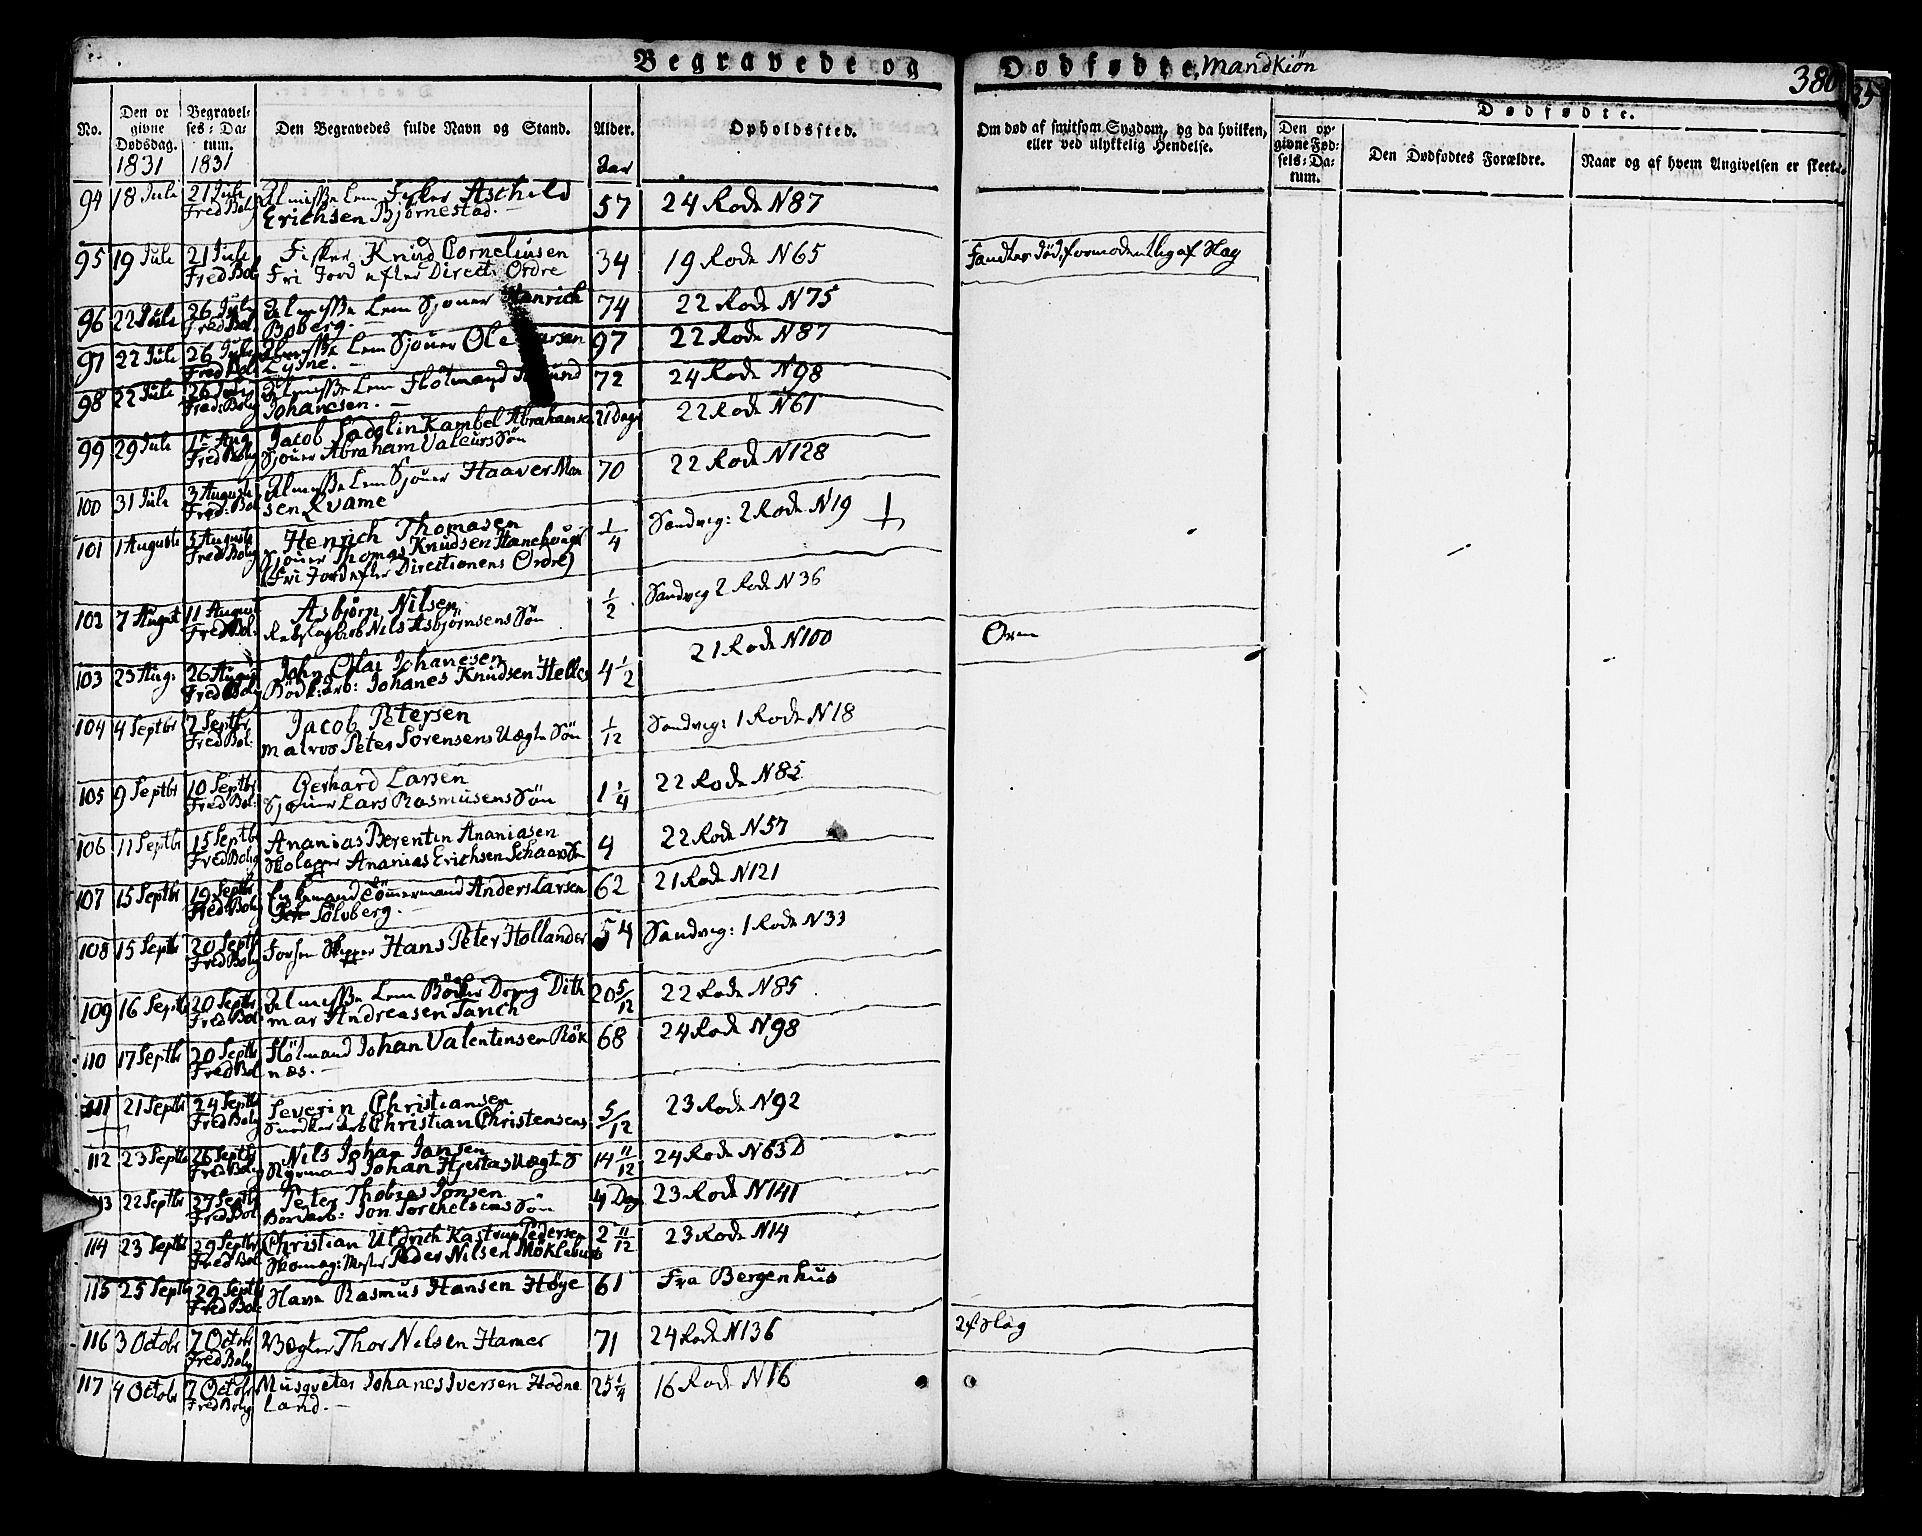 Begravede og Dødfødte, Mandkiön 380
No. Den opgivne Dødsdag. Begravelses-Datum. Den Begravedes fulde Navn og Stand. Alder. Opholdssted. Om død af smitsom Sygdom, og da hvilken, eller ved ulykkelig Hendelse. Den opgivne Fødsels-Datum. Dødfødte. Den Dødfødtes Forældre. Naar og af hvem Angivelsen er skeet.
1831 1831 Aar
94 18 Jule 21 Jule Almisse Lem Fisker Aschild 57 24 Rode N 87
Fred Bolg Erichsen Bjørnestad.
95 19 Jule 21 Jule Fisker Knud Corneliusen 34 19 Rode N 65 Fandtes Död, formodentlig af Slag
Fred Bolg Fri Jord efter Direct: Ordre
96 22 Jule 26 Jule Almisse Lem Sjouer Henrich 74 22 Rode N 75
Fred Bol. Boberg.
97 22 Jule 26 Jule Almisse Lem Sjouer Ole Larsen 97 22 Rode N 87
Fred Bol Lysne.
98 22 Jule 26 Jule Almisse Lem Flötmand 72 24 Rode N 98
Fred: Bolg Johanesen.
99 29 Jule 1te Aug Jacob Sadolin Kambel Abrahamsen 21 Dage 22 Rode N 61
Fred Bolg Sjouer Abraham Valeurs Sön
100 31 Jule 3 Auguste Almisse Lem Sjouer Haaver Mon 70 22 Rode N 128
Fred: Bol. sen Qvame
101 1 Auguste 5 Auguste Henrich Thomasen 1/4 Sandvig: 2 Rode N 19
Fred Bolg Sjouer Thomas Knudsen Hanehougs
(Fri Jord efter Directionens Ordre)
102 7 August 11 August Asbjörn Nilsen 1/2 Sandvig 2 Rode N 36
Fred Bol. Rebslagerb Nils Asbjörnsens Sön
103 23 Aug. 26 August John Olai Johanesen 4 1/2 21 Rode N 100 Orm
Fred Bolg Bödk: Arb: Johanes Knudsen Helles
104 4 Septbr 7 Septbr Jacob Petersen 1/12 Sandvig: 1 Rode N 18
Fred Bol. Matros Peter Sorensens Uægte Sön
105 9 Septbr 10 Septbr Gerhard Larsen 1 1/4 22 Rode N 85
Fred Bol. Sjouer Lars Rasmusens Sön
106 11 Septbr 15 Septbr Ananias Berentin Ananiasen 4 22 Rode N 57
Fred Bolg Skolapper Ananias Erichsen Schaars Sön
107 15 Septbr 19 Septbr Enkemand Tömmermand Anders Larsen 62 21 Rode N 121
Fred Bolg Sölvberg.
108 15 Septbr 20 Septb Forhen Skipper Hans Peter Hollander 54 Sandvig: 1 Rode N 33
Fred Bolg
109 16 Septbr 20 Septbr Almisse Lem Bödker Dreng Dith 20 5/12 22 Rode N 85
Fred Bol mar Andreasen Tanch
110 17 Septbr 20 Septbr Flötmand Johan Valentinsen Rök 68 24 Rode N 98
Fred Bol næs.
111 21 Septbr 24 Septb Severin Christiansen 5/12 23 Rode N 92
Fred Bolg Snedker Arb Christian Christensens
112 23 Septbr 26 Septb Nils Johan Jansen 14 11/12 24 Rode N 63 D
Fred Bolg Styrmand Johan Hjertas Uægte S
113 22 Septbr 27 Septb Peter Thobias Jonsen 4 Dage 23 Rode N 141
Fred Bol Bordarb: Jon Torchelsens Sön
114 23 Septbr 29 Septbr Christian Uldrich Kastrup Pedersen 2 11/12 23 Rode N 14
Fred Bol Skomag: Mester Peder Nilsen Möklebust
115 25 Septbr 29 Septbr Slave Rasmus Hansen Höye 61 Fra Bergenhus
Fred Bol:
116 3 Octobr 7 Octobr Vægter Thor Nilsen Hamer 71 24 Rode N 136 Af Slag
Fred Bolg
117 4 Octobr 7 Octobr Musqveter Johanes Iversen Hodne 25 1/4 16 Rode N 16
Fred Bolg land.